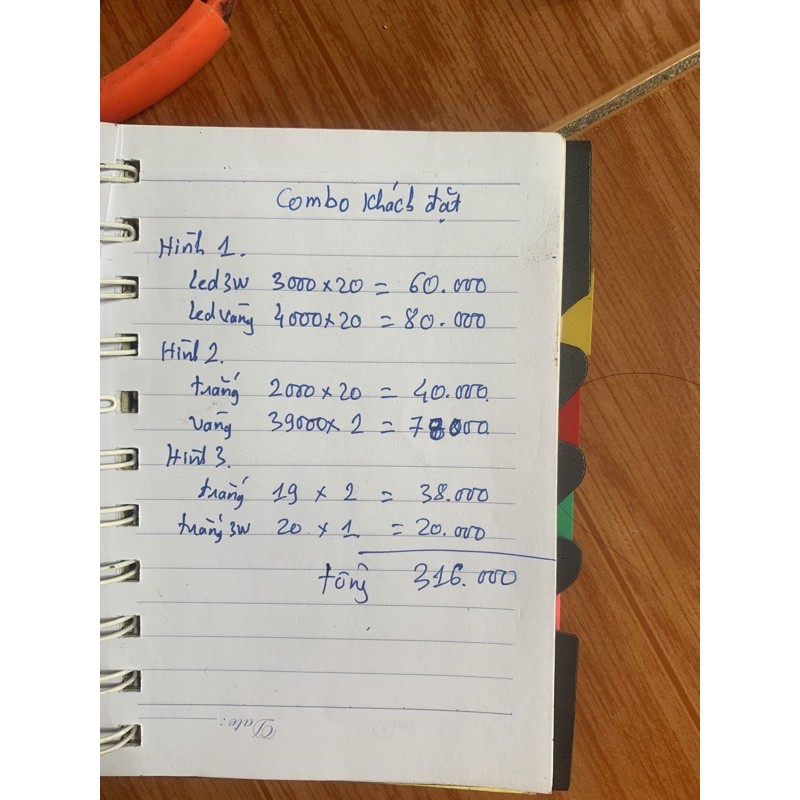 Combo khách đặt
Hình 1.
Led 3W 3000 x 20 = 60.000
Led vàng 4000 x 20 = 80.000
Hình 2.
trắng 2000 x 20 = 40.000.
vàng 39000 x 2 = 78000
Hình 3.
trắng 19 x 2 = 38.000
trắng 3W 20 x 1 = 20.000
tổng 316.000
Date: